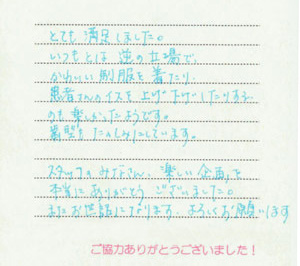 とても満足しました。
いつもとは逆の立場で、
かわいい制服を着たり、
患者さんのイスを上げ下げしたりする
のも楽しかったようです。
をたのしみにしています。
スタッフのみなさん、楽しい企画、
本当にありがとうございました。
またお世話になります。よろしくお願います
ご協力ありがとうございました!